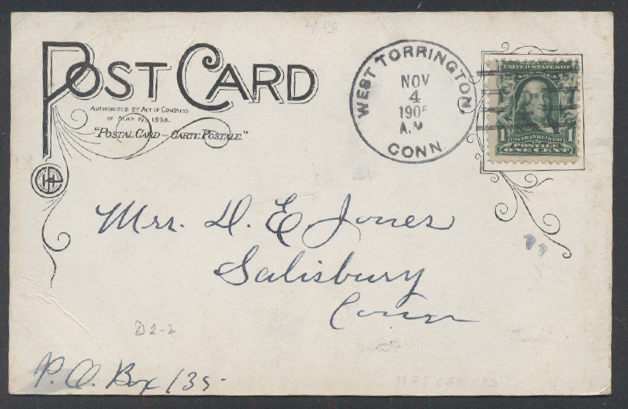 POST CARD
AUTHORIZED BY ACT OF CONGRESS
OF MAY 19, 1898.
"POSTAL CARD — CARTE POSTALE."
WEST TORRINGTON
NOV
4
A.M
CONN.
1 POSTAGE 1
ONE CENT
Mrs. D. E Jones
Salisbury
Conn
D2-2
P.O. Box 135-